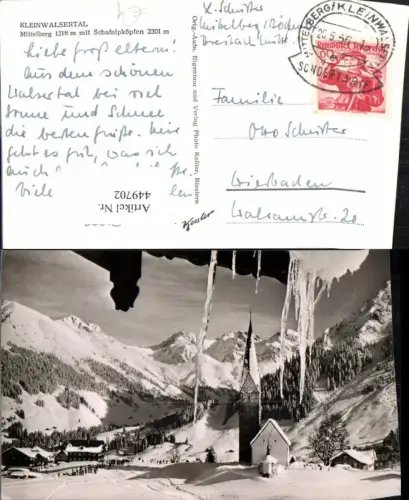 KLEINWALSERTAL
Mittelberg 1218 m mit Schafalpköpfen 2301 m
Liebe Großeltern!
Aus dem schönen
Walsertal bei viel
Sonne und Schnee
die besten Grüße. Mir
geht es gut, was ich
auch
Viele
Artikel Nr.
449702
Orig.-Aufn. Eigentum und Verlag Photo Keßler, Riezlern
Keßler
K. Schuster
MITTELBERG/KLEINWAL
SONDERTARIF
Familie
Otto Schuster
Wiesbaden
Walramstr. 20